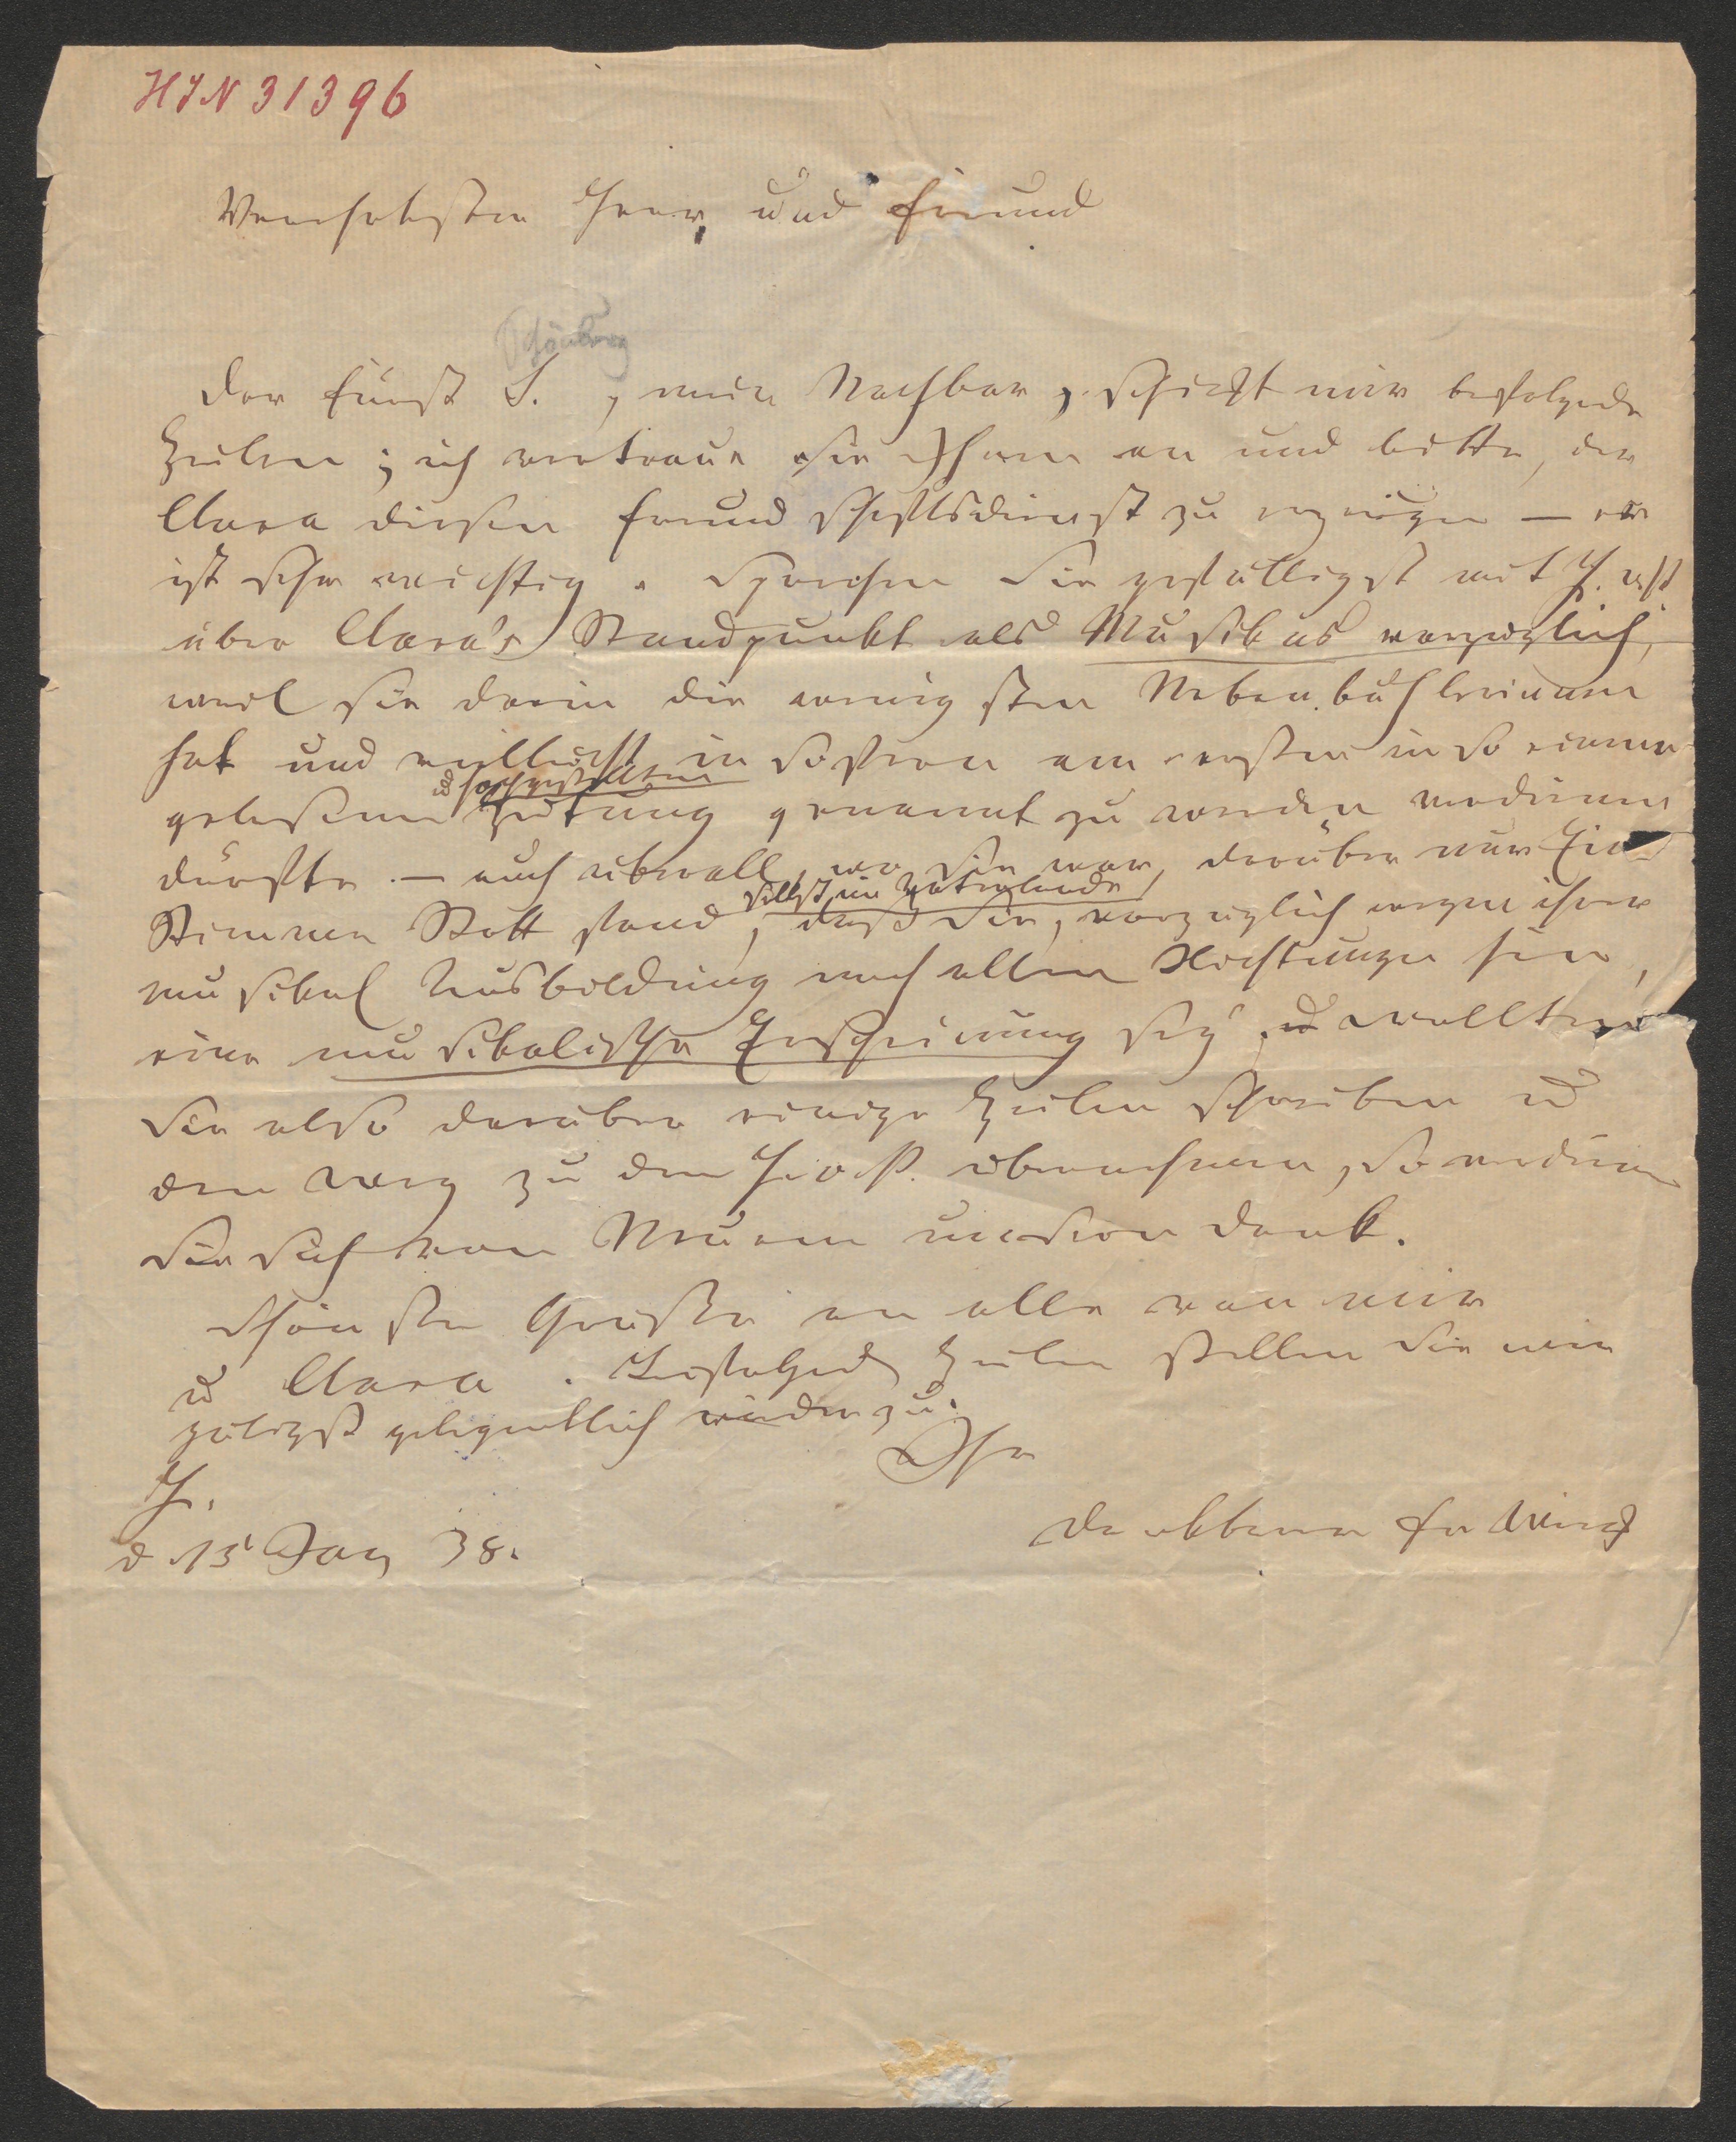 HIN 31396
Verehrtester Herr und Freund
Schönburg
Der Fürst S., mein Nachbar, schickt mir beifolgende
Zeilen; ich vertraue sie Ihnen an und bitte, der
Clara diesen Freundschaftsdienst zu erzeigen — er
ist sehr wichtig. Sprechen Sie gefälligst mit H. 
über Clara's Standpunkt als Musikus vorzüglich,
weil sie darin die wenigsten Nebenbuhlerinnen
hat und vielleicht in so einer
u hochgestellten
gelesenen Zeitung genannt zu werden verdienen
dürfte. — auch überall, wo sie war, darüber nur Eine
selbst im Vaterlande
Stimme Statt fand, daß sie, vorzüglich wegen ihrer
musikal Ausbildung nach allen Richtungen hin,
eine musikalische Erscheinung sey. wollten
Sie also darüber einige Zeilen schreiben u
den Weg zu dem übernehmen, so verdienen
Sie sich von Neuem unsern Dank.
Schönste Grüße an alle von mir
u Clara. Beifolgende Zeilen stellen Sie mir
gütigst gelegentlich wieder zu.
Ihr
H.
dankbarer Fr Wieck
d 15 Jan 38.